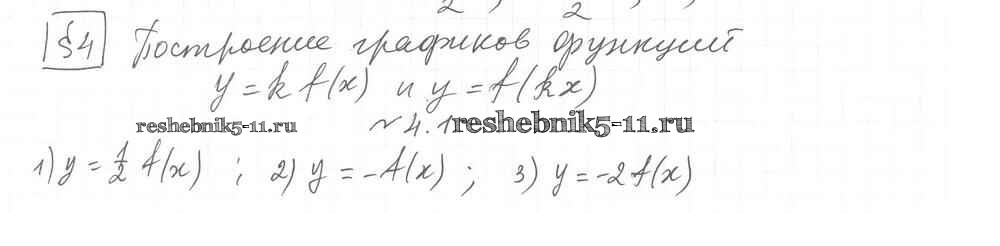 §4 Построение графиков функций
y = k f(x) и y = f(kx)
reshebnik5-11.ru № 4.1 reshebnik5-11.ru
1) y = 1/2 f(x) ; 2) y = -f(x) ; 3) y = -2f(x)